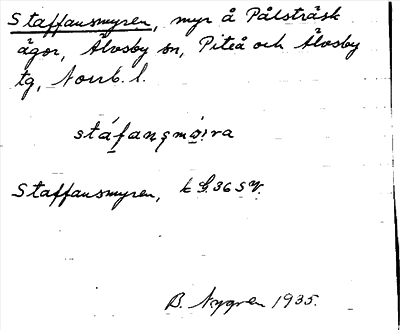 Staffansmyren, myr å Pålsträsk
ägor, Älvsby sn, Piteå och Älvsby
tg, Norrb. l.
Staffansmyren, k 36 SV.
B. Nygren 1935.